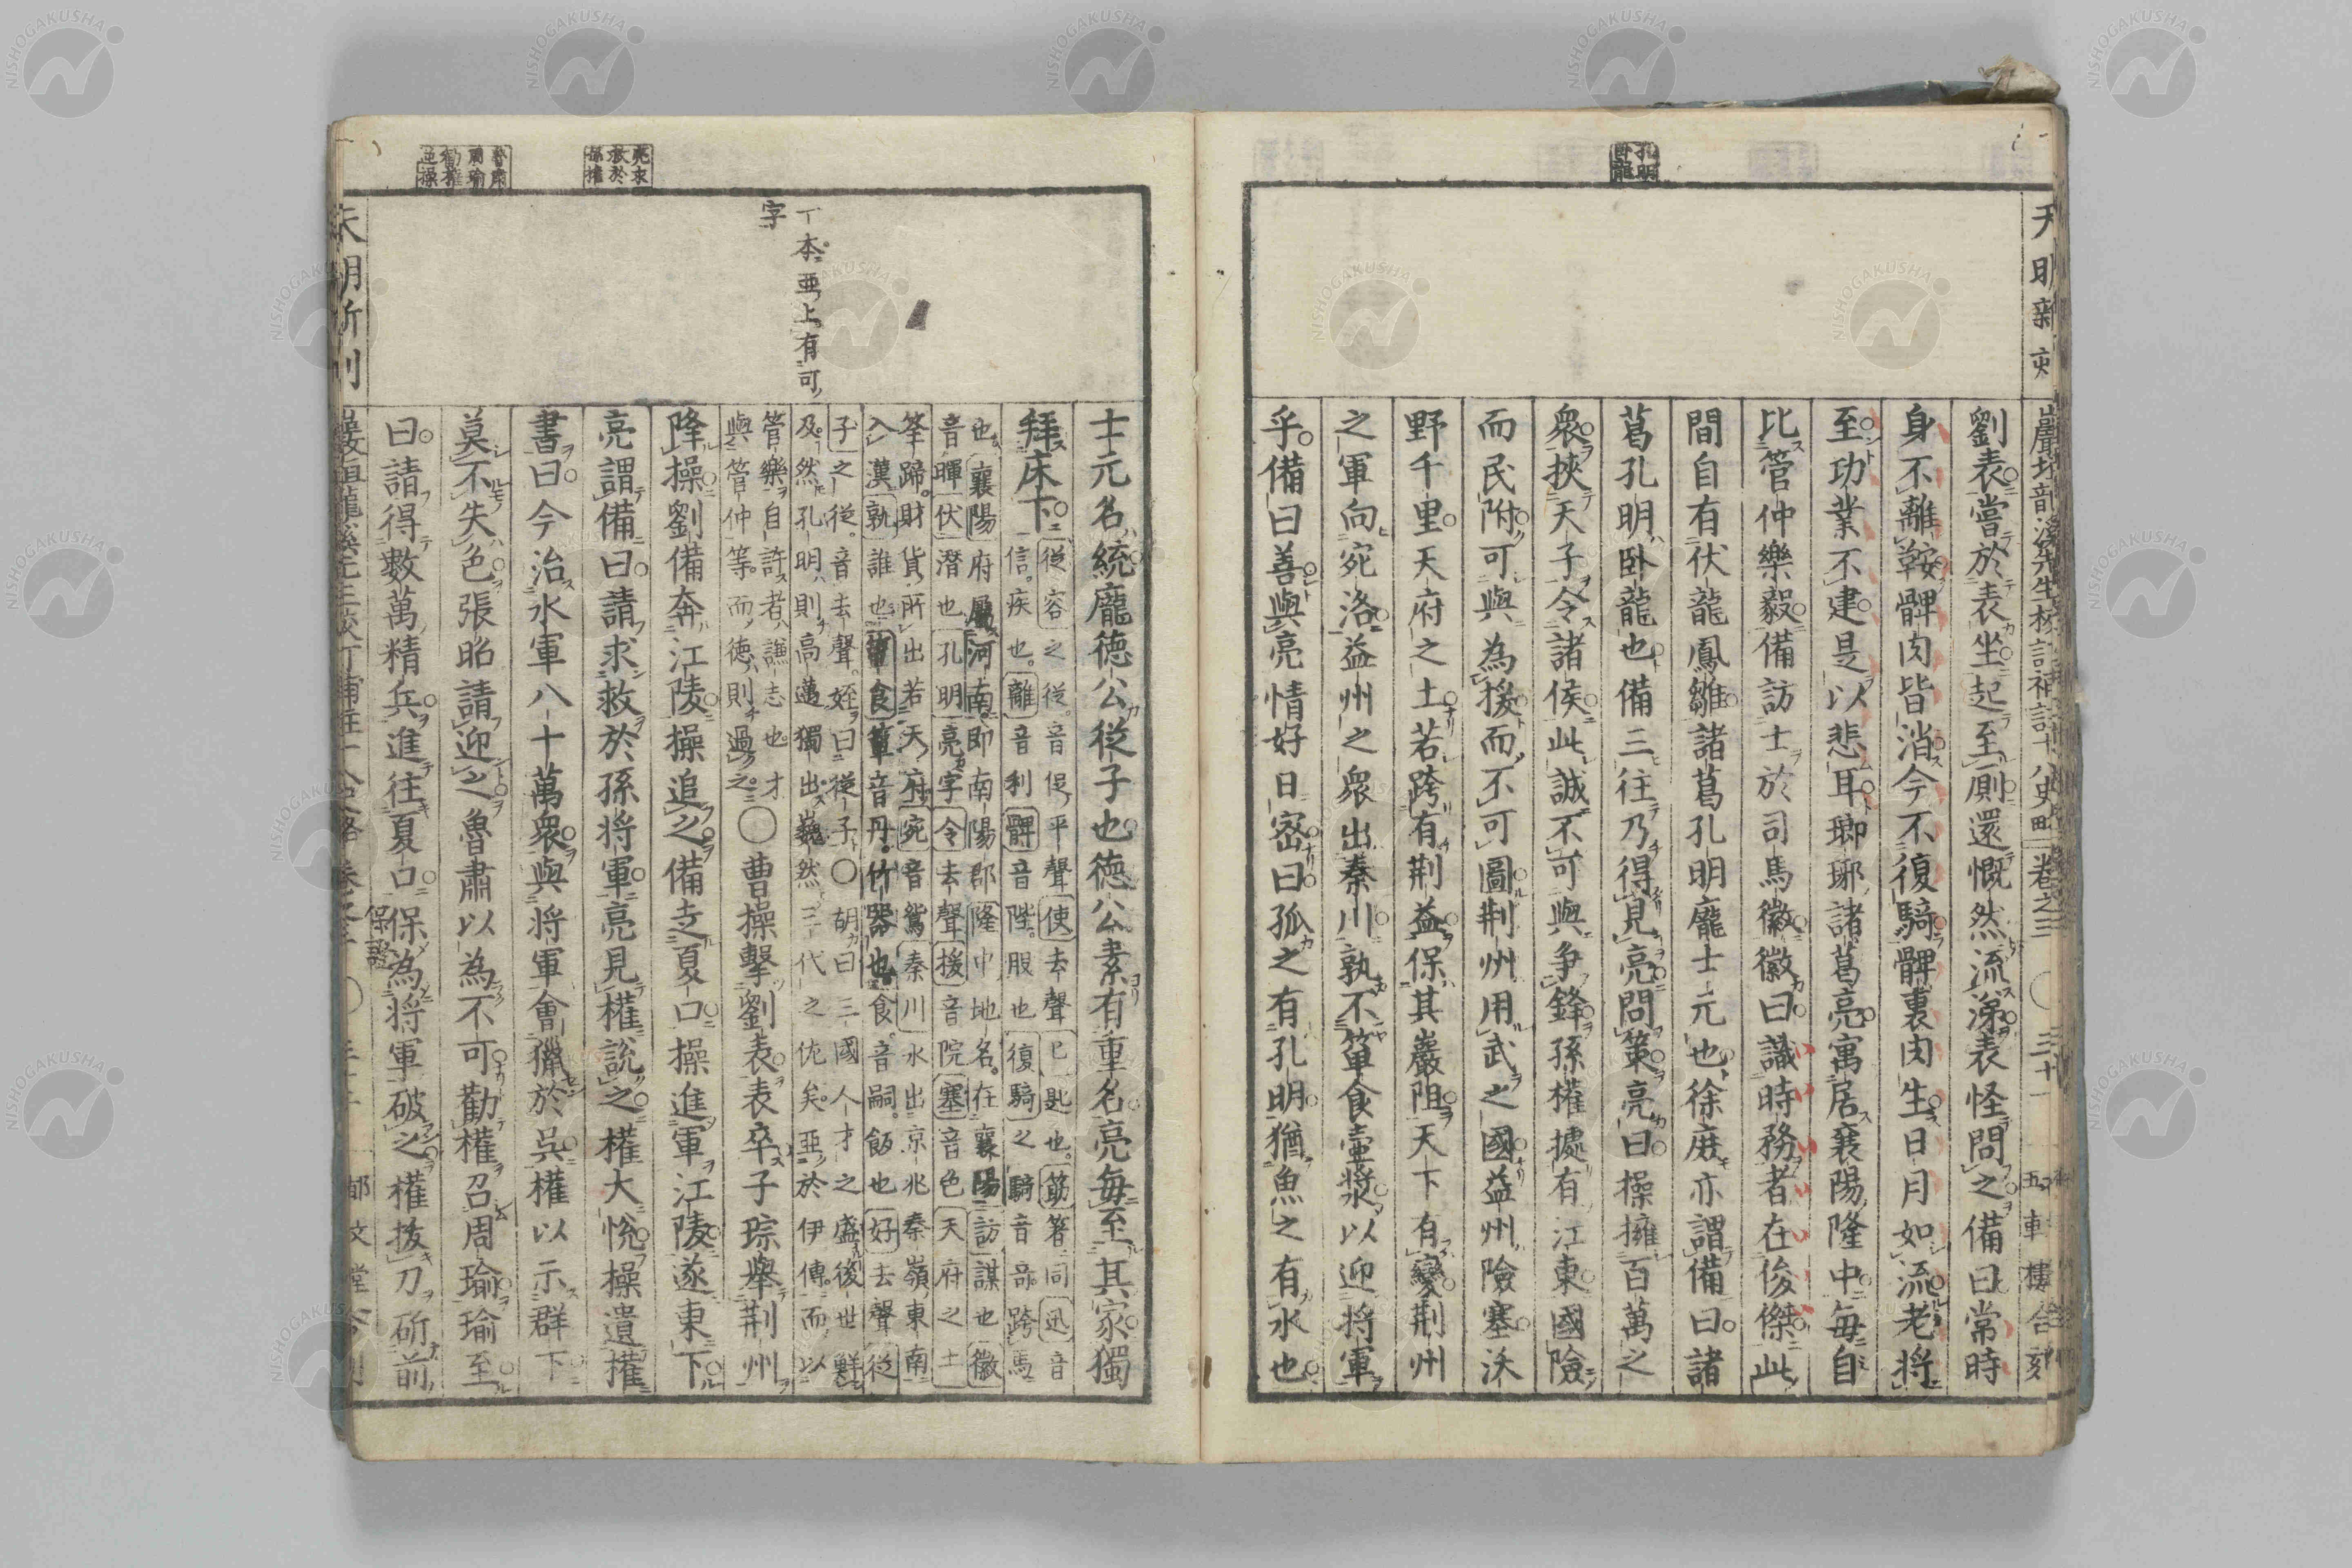 孔明
臥龍
天明新刻
巖垣龍溪先生標記補註十八史略 卷之三 〇 三十一 五車樓合刻
劉表嘗於表坐起至厠還慨然流涕表怪問之備曰常時
身不離鞍髀肉皆消今不復騎髀裏肉生日月如流老將
至功業不建是以悲耳瑯琊諸葛亮寓居襄陽隆中每自
比管仲樂毅備訪士於司馬徽徽曰識時務者在俊傑此
間自有伏龍鳳雛諸葛孔明龐士元也徐庶亦謂備曰諸
葛孔明臥龍也備三往乃得見亮問策亮曰操擁百萬之
衆挾天子令諸侯此誠不可與爭鋒孫權據有江東國險
而民附可與為援而不可圖荆州用武之國益州險塞沃
野千里天府之土若跨有荆益保其巖阻天下有變荆州
之軍向宛洛益州之衆出秦川孰不簞食壺漿以迎將軍
乎備曰善與亮情好日密曰孤之有孔明猶魚之有水也
亮求
救於
孫權
魯肅
周瑜
勸權
逆操
一本亜上有可
字
士元名統龐徳公從子也徳公素有重名亮每至其家獨
拜床下
從容之從音促平聲使去聲匕匙也筯箸同迅音
信疾也離音利髀音陛股也復騎之騎音奇跨馬
也襄陽府屬河南即南陽郡隆中地名在襄陽訪謀也徽
音暉伏潛也孔明亮字令去聲援音院塞音色天府之土
筌蹄財貨所出若天府宛音鴛秦川水出京兆秦嶺東南
入漢孰誰也簞食簞音丹竹器也食音嗣飯也好去聲從
子之從音去聲姪曰從子〇胡曰三國人才之盛後世鮮
及然孔明則高邁獨出巍然三代之佐矣亜於伊傅而以
管樂自許者謙志也才
與管仲等而徳則過之
〇曹操擊劉表表卒子琮舉荆州
降操劉備奔江陵操追之備走夏口操進軍江陵遂東下
亮謂備曰請求救於孫將軍亮見權說之權大悅操遺權
書曰今治水軍八十萬衆與將軍會獵於吳權以示群下
莫不失色張昭請迎之魯肅以為不可勸權召周瑜瑜至
曰請得數萬精兵進往夏口保為將軍破之權拔刀斫前
保證
天明新刊
郁文堂